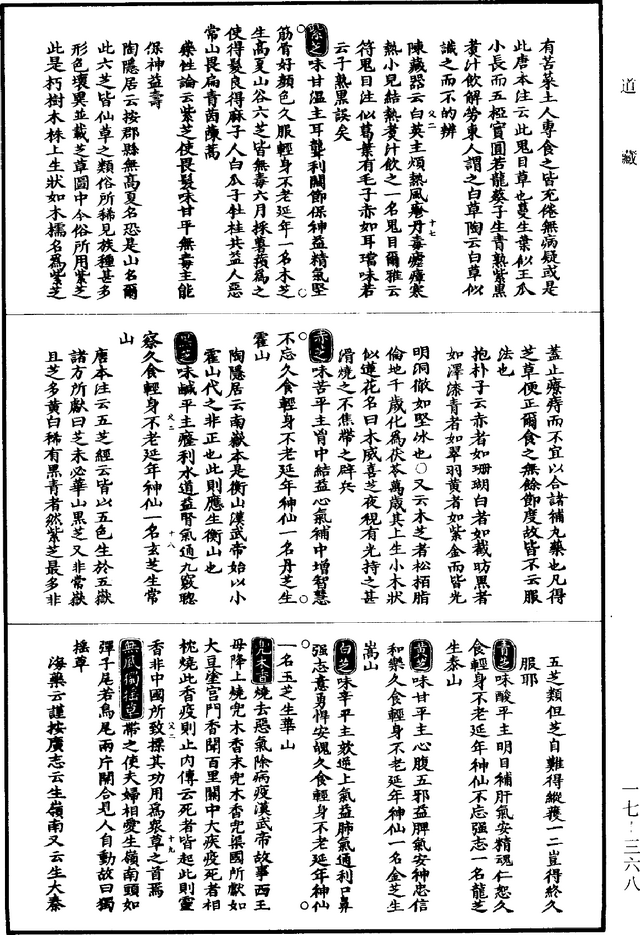 道藏
有苦菜土人專食之皆充倦無病疑或是
此唐本注云此鬼目草也蔓生葉似王瓜
小長而五椏實圓若龍葵子生青熟紫黑
煮汁飲解勞東人謂之白草陶云白草似
識之而不的辨
又二 十七
陳藏器云白英主煩熱風疹丹毒瘧瘴寒
熱小兒結熱煮汁飲之一名鬼目爾雅云
符鬼目注似葛葉有毛子赤如耳璫味若
云子熟黑誤矣
紫芝味甘溫主耳聾利關節保神益精氣堅
筋骨好顏色久服輕身不老延年一名木芝
生高夏山谷六芝皆無毒六月採薯蕷為之
使得髮良得麻子人白瓜子牡桂共益人惡
常山畏扁青茵蔯蒿
藥性論云紫芝使畏髮味甘平無毒主能
保神益壽
陶隱居云按郡縣無高夏名恐是山名爾
此六芝皆仙草之類俗所稀見族種甚多
形色瓌異並載芝草圖中今俗所用紫芝
此是朽樹木株上生狀如木檽名為紫芝
蓋止療痔而不宜以合諸補丸藥也凡得
芝草便正爾食之無餘節度故皆不云服
法也
抱朴子云赤者如珊瑚白者如截昉黑者
如澤漆青者如翠羽黃者如紫金而皆光
明洞徹如堅冰也○又云木芝者松栢脂
倫地千歲化為茯苓萬歲其上生小木狀
似蓮花名曰木威喜芝夜視有光持之甚
滑燒之不焦帶之辟兵
赤芝味苦平主胷中結益心氣補中增智慧
不忘久食輕身不老延年神仙一名丹芝生
霍山
陶隱居云南嶽本是衡山漢武帝始以小
霍山代之非正也此則應生衡山也
黑芝味鹹平主癃利水道益腎氣通九竅聰
又二 十八
察久食輕身不老延年神仙一名玄芝生常
山
唐本注云五芝經云皆以五色生於五嶽
諸方所獻曰芝未必華山黑芝又非常嶽
且芝多黃白稀有黑青者然紫芝最多非
五芝類但芝自難得縱獲一二豈得終久
服耶
青芝味酸平主明目補肝氣安精魂仁恕久
食輕身不老延年神仙不忘强志一名龍芝
生泰山
黃芝味甘平主心腹五邪益脾氣安神忠信
和樂久食輕身不老延年神仙一名金芝生
嵩山
白芝味辛平主欬逆上氣益肺氣通利口鼻
强志意勇悍安魄久食輕身不老延年神仙
一名玉芝生華山
兜木香燒去惡氣除病疫漢武帝故事西王
母降上燒兜木香末兜木香兜渠國所獻如
大豆塗宮門香聞百里關中大疾疫死者相
枕燒此香疫則止內傳云死者皆起此則靈
又二 十九
香非中國所致標其功用為衆草之首焉
無風獨搖草帶之使夫婦相愛生嶺南頭如
彈子尾若鳥尾兩片開合見人自動故曰獨
搖草
海藥云謹按廣志云生嶺南又云生大秦
一七－三六八